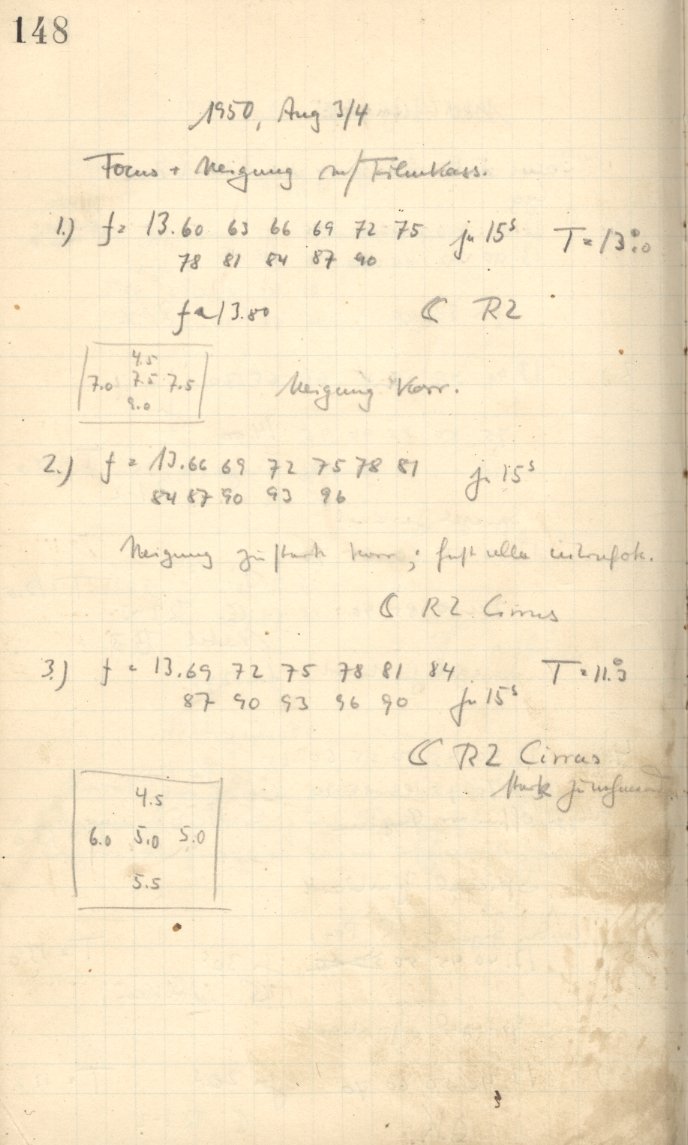 148
1950, Aug 3/4
Focus + Neigung m/ Filmkass.
1.) f = 13.60 63 66 69 72 75 je 15s T = 13°.0
78 81 84 87 90
f = 13.80 R2
4.5
7.0 7.5 7.5
9.0
Neigung Korr.
2.) f = 13.66 69 72 75 78 81 je 15s
84 87 90 93 96
Neigung zu stark korr; fast alle
R2 Cirrus
3.) f = 13.69 72 75 78 81 84 T = 11°.3
87 90 93 96 90 je 15s
R2 Cirrus
stark zunehmend
4.5
6.0 5.0 5.0
5.5